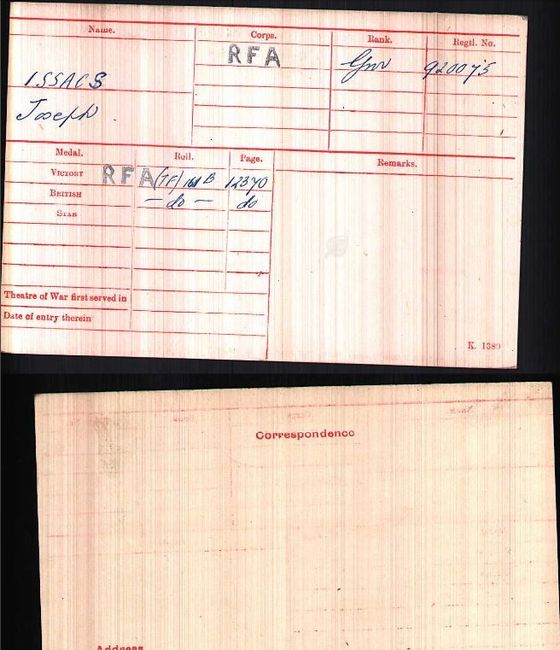 Name. Corps. Rank. Regtl. No.
RFA Gnr 920075
ISSACS
Joseph
Medal. Roll. Page. Remarks.
VICTORY RFA (TF) 161 B 12370
BRITISH - do - do
STAR
Theatre of War first served in
Date of entry therein
K. 1380
Correspondence
Address